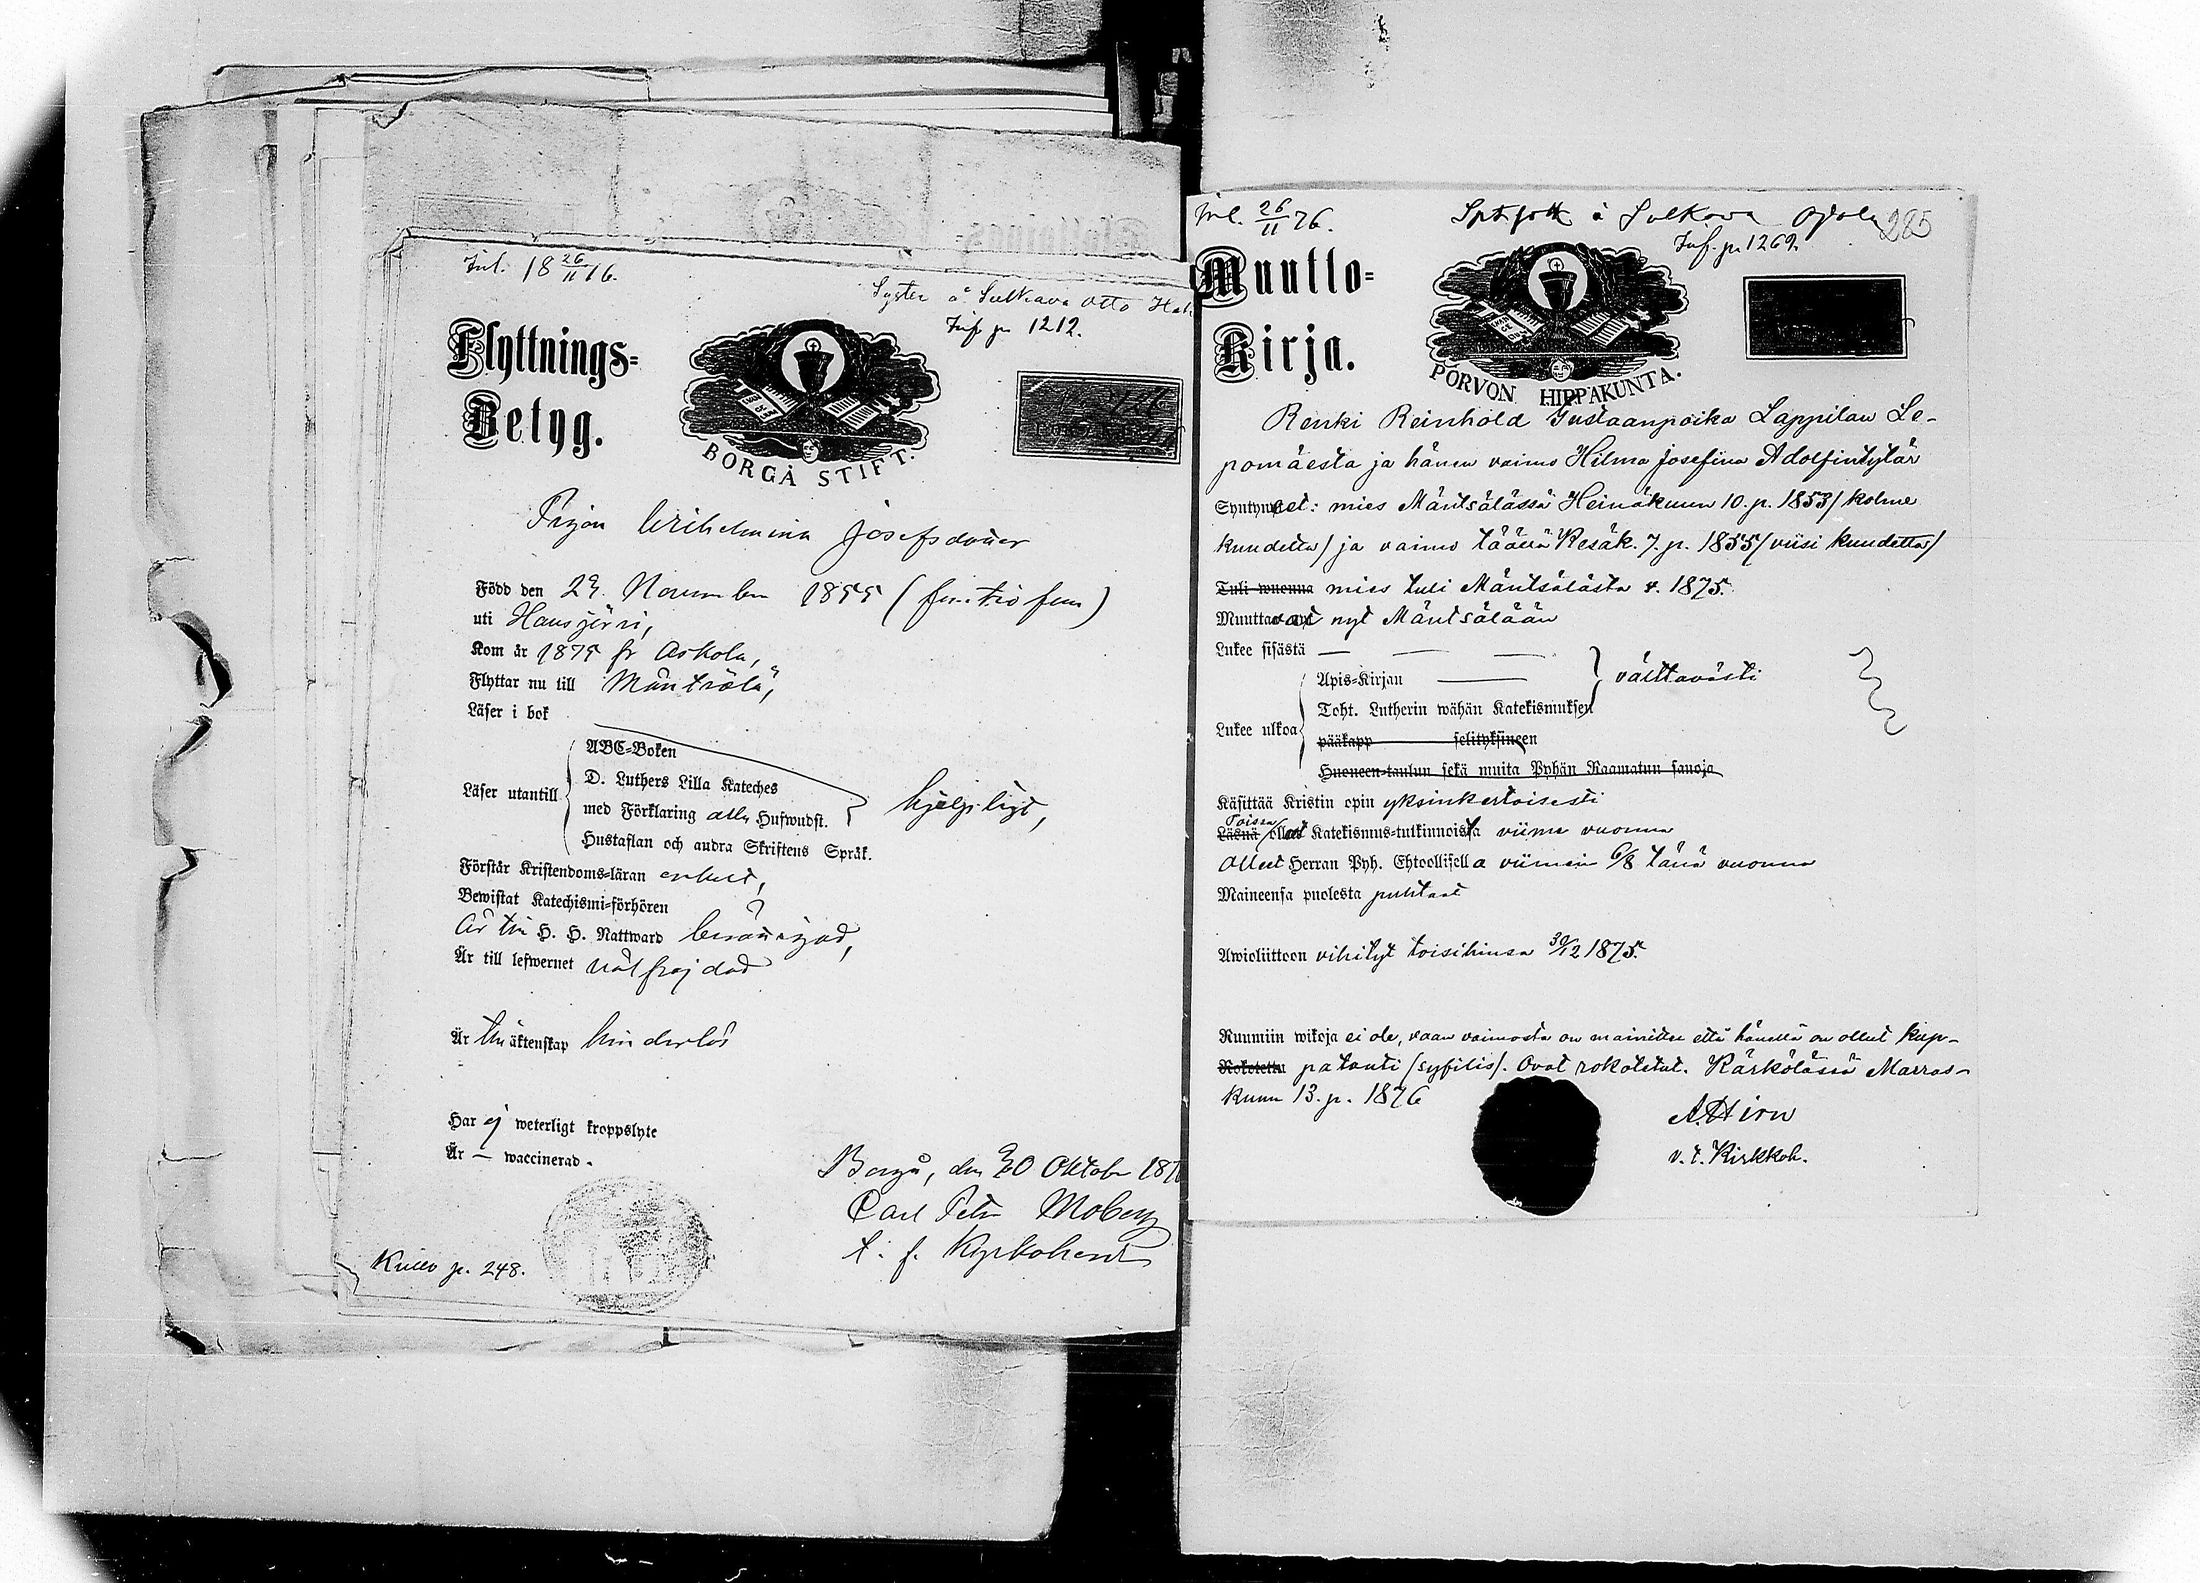 Inl. 18 26/11 76.
Syster å Sulkava Otto
Inf. p. 1212.
Flyttnings=
Betyg.
BORGÅ STIFT.
Pigan Wilhelmina Josefsdotter
Född den 29. November 1855 (femtio fem)
uti Hausjärvi,
Kom år 1875 fr Askola,
Flyttar nu till Mäntsälä,
Läser i bok
ABC=Boken
D. Luthers Lilla Kateches
Läser utantill med Förklaring alla Hufwudst. hjelpligt,
Hustaflan och andra Skriftens Språk.
Förstår Kristendoms=läran enkelt,
Bewistat Katechismi=förhören
Är till H. H. Nattward berättigad,
Är till lefwernet väl frejdad
Är till äktenskap hinderlös
Har ej weterligt kroppslyte
Är — waccinerad.
Borgå, den 30 Oktober 187
Carl Petr Moberg
t. f. Kyrkoherde
Kullo p. 248.
Inl. 26/11 76.
å Sulkava Ojala 285
Inf. p. 1269.
Muutto=
Kirja.
PORVON HIPPAKUNTA.
Renki Reinhold Gustaanpoika Lappilan Le-
pomäestä ja hänen vaimo Hilma Josefina Adolfintytär
Syntyneet: mies Mäntsälässä Heinäkuun 10. p. 1853/ kolme
kuudetta/ ja vaimo täällä Kesäk. 7. p. 1855/ viisi kuudetta/
Tuli wuonna mies tuli Mäntsälästä v. 1875.
Muuttavat nyt Mäntsälään
Lukee sisästä — — —
Apis=Kirjan — välttävästi
Toht. Lutherin wähän Katekismuksen
Lukee ulkoa
pääkapp selityksineen
Huoneen=taulun sekä muita Pyhän Raamatun sanoja
Käsittää Kristin opin yksinkertaisesti
Toisra
Läsnä ollut Katekismus=tutkinnoista viime vuonna
Olleet Herran Pyh. Ehtoollisella viimein 6/8 tänä vuonna
Maineensa puolesta puhtaat
Awioliittoon vihityt toisihinsa 30/12 1875.
Ruumiin wikoja ei ole, vaan vaimosta on mainittu että hänellä on ollut kup-
Rokotettu patauti (syfilis). Ovat rokotetut. Kärkölässä Marras-
kuun 13. p. 1876
A. Hirn
v. t. Kirkkoh.